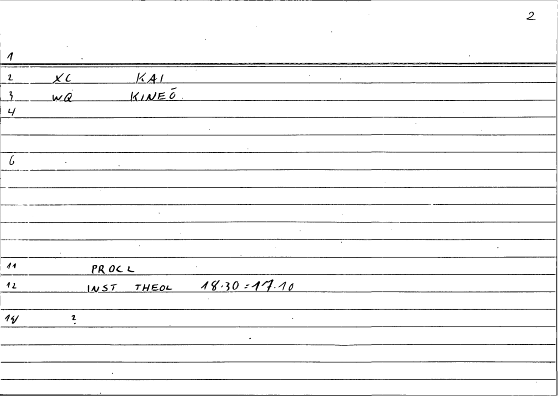 2
1
2 XC KAI
3 WQ KINEŌ
4
6
11 PROCL
12 INST THEOL 18.30 = 17.10
14/ 2